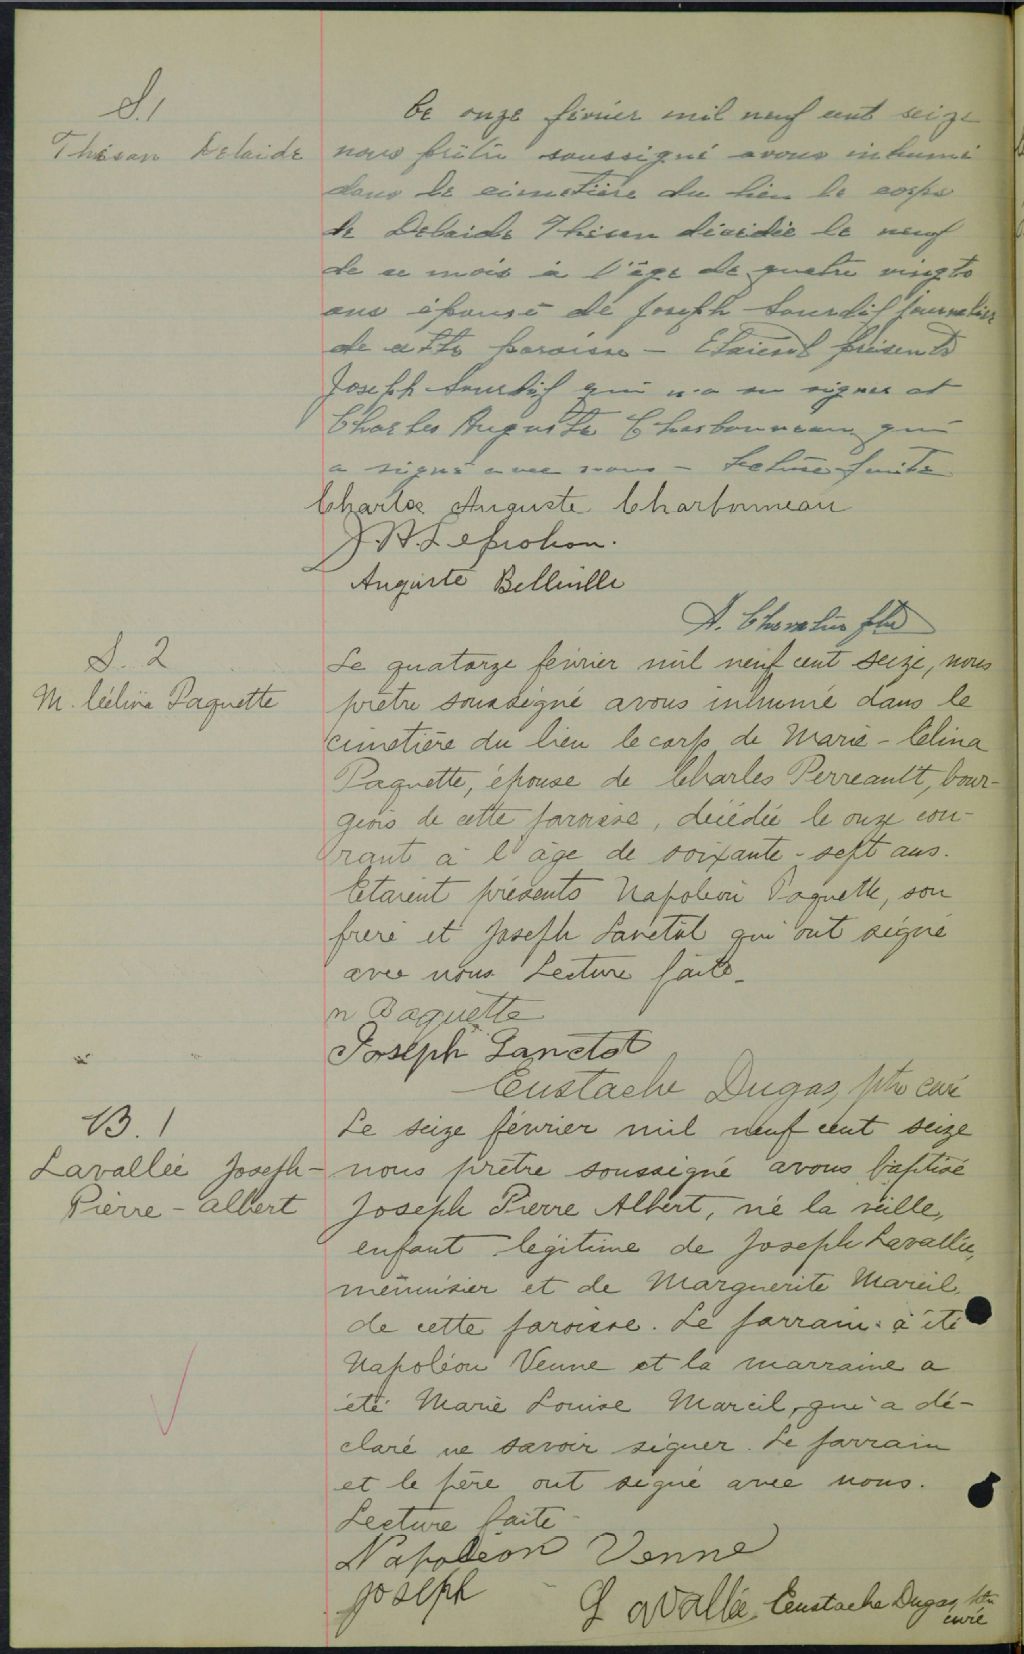 S.1
Thisan Delaide
Ce onze février mil neuf cent seize
nous prêtre soussigné avons inhumé
dans le cimetière du lieu le corps
de Delaide Thisen décédée le neuf
de ce mois à l'âge de quatre vingts
ans épouse de Joseph Sourdif journalier
de cette paroisse - Etaient présents
Joseph Sourdif qui n'a su signer et
Charles Auguste Charbonneau qui
a signé avec nous - Lecture faite
Charles Auguste Charbonneau
J.A. Leprohon.
Auguste Belleville
A. Chevalier ptre
S. 2
M. Céline Paquette
Le quatorze février mil neuf cent seize, nous
prêtre soussigné avons inhumé dans le
cimetière du lieu le corps de Marie-Célina
Paquette, épouse de Charles Perreault, bour-
geois de cette paroisse, décédée le onze cou-
rant à l'âge de soixante-sept ans.
Etaient présents Napoléon Paquette, son
frère et Joseph Lanctôt qui ont signé
avec nous Lecture faite.
n Paquette
Joseph Lanctot
Eustache Dugas, ptre curé
B. 1
Lavallée Joseph-
Pierre-Albert
Le seize février mil neuf cent seize
nous prêtre soussigné avons baptisé
Joseph Pierre Albert, né la veille,
enfant légitime de Joseph Lavallée,
menuisier et de Marguerite Mareil
de cette paroisse. Le parrain a été
Napoléon Venne et la marraine a
été Marie Louise Marcil, qui a dé-
claré ne savoir signer. Le parrain
et le père ont signé avec nous.
Lecture faite
Napoléon Venne
Joseph Lavallée Eustache Dugas, ptre
curé